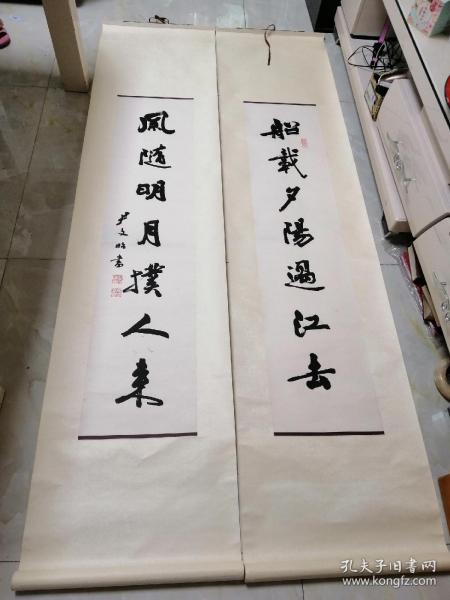 船载夕陽過江去
風随明月撲人来
尹文昭書
孔夫子旧书网
www.kongfz.com